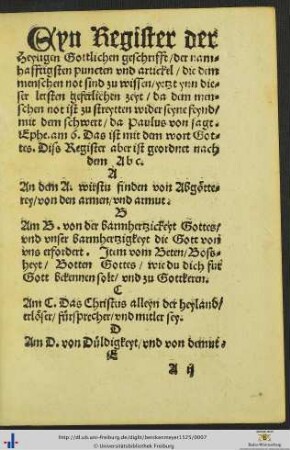 Eyn Register der
Heyligen Gottlichen geschrifft / der nam-
hafftigsten puncten vnd artickel / die dem
menschen not sind zu wissen / yetzt ynn die-
ser letsten geferlichen zeyt / da dem men-
schen not ist zu streytten wider seyne feynd /
mit dem schwert / da Paulus von sagt.
Ephe. am 6. Das ist mit dem wort Got-
tes. Diss Register aber ist geordnet nach
dem A b c.
A
An dem A. wirstu finden von Abgötte-
rey / von den armen / vnd armut.
B
Am B. von der barmhertzickeyt Gottes /
vnd vnser barmhertzigkeyt die Gott von
vns erfordert. Item vom Beten / Boss-
heyt / Botten Gottes / wie du dich fur
Gott bekennen solt / vnd zu Gott keren.
C
Am C. Das Christus alleyn der heyland /
erlöser / fürsprecher / vnd mitler sey.
D
Am D. von Düldigkeyt / vnd von demut.
E
A ij
http://dl.ub.uni-freiburg.de/diglit/beringer1525/0007
© Universitätsbibliothek Freiburg
Baden-Württemberg